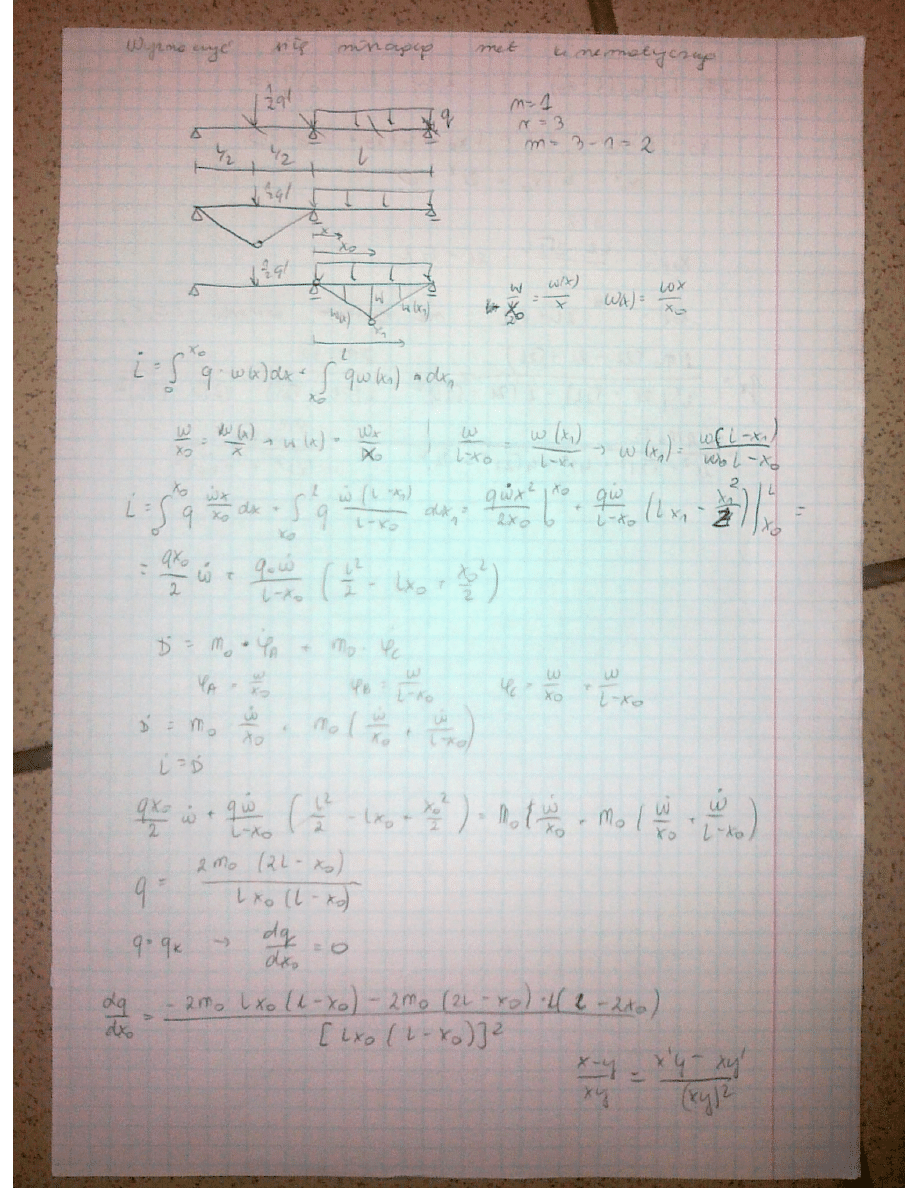 Wyznaczyć się niszczącą met kinematyczną
½ql
q
n=1
r = 3
m = 3-1 = 2
l/2 l/2 l
½ql
x
x₀
½ql
w(x) w w(x₁)
x₁
l
w/x₀ = w(x)/x w(x) = wx/x₀
L̇ = ∫₀^x₀ q · w(x)dx + ∫x₀^l q w(x₁) · dx₁
w/x₀ = w(x)/x → w(x) = wx/x₀ | w/(l-x₀) = w(x₁)/(l-x₁) → w(x₁) = w(l-x₁)/(l-x₀)
L̇ = ∫₀^x₀ q ẇx/x₀ dx + ∫x₀^l q ẇ(l-x₁)/(l-x₀) dx₁ = qẇx²/2x₀ |₀^x₀ + qẇ/(l-x₀) (lx₁ - x₁²/2)|x₀^l =
= qx₀/2 ẇ + q·ẇ/(l-x₀) (l²/2 - lx₀ + x₀²/2)
Ḋ = m₀ · φ̇A + m₀ · φ̇C
φA = w/x₀ φB = w/(l-x₀) φC = w/x₀ + w/(l-x₀)
Ḋ = m₀ ẇ/x₀ + m₀ (ẇ/x₀ + ẇ/(l-x₀))
L̇ = Ḋ
qx₀/2 ẇ + qẇ/(l-x₀) (l²/2 - lx₀ + x₀²/2) = m₀ ẇ/x₀ + m₀ (ẇ/x₀ + ẇ/(l-x₀))
q = 2m₀ (2l - x₀) / lx₀ (l - x₀)
q = qk → dqk/dx₀ = 0
dq/dx₀ = -2m₀ lx₀ (l-x₀) - 2m₀ (2l-x₀) · l(l - 2x₀) / [lx₀ (l-x₀)]²
x-y/xy = x'y - xy'/(xy)²